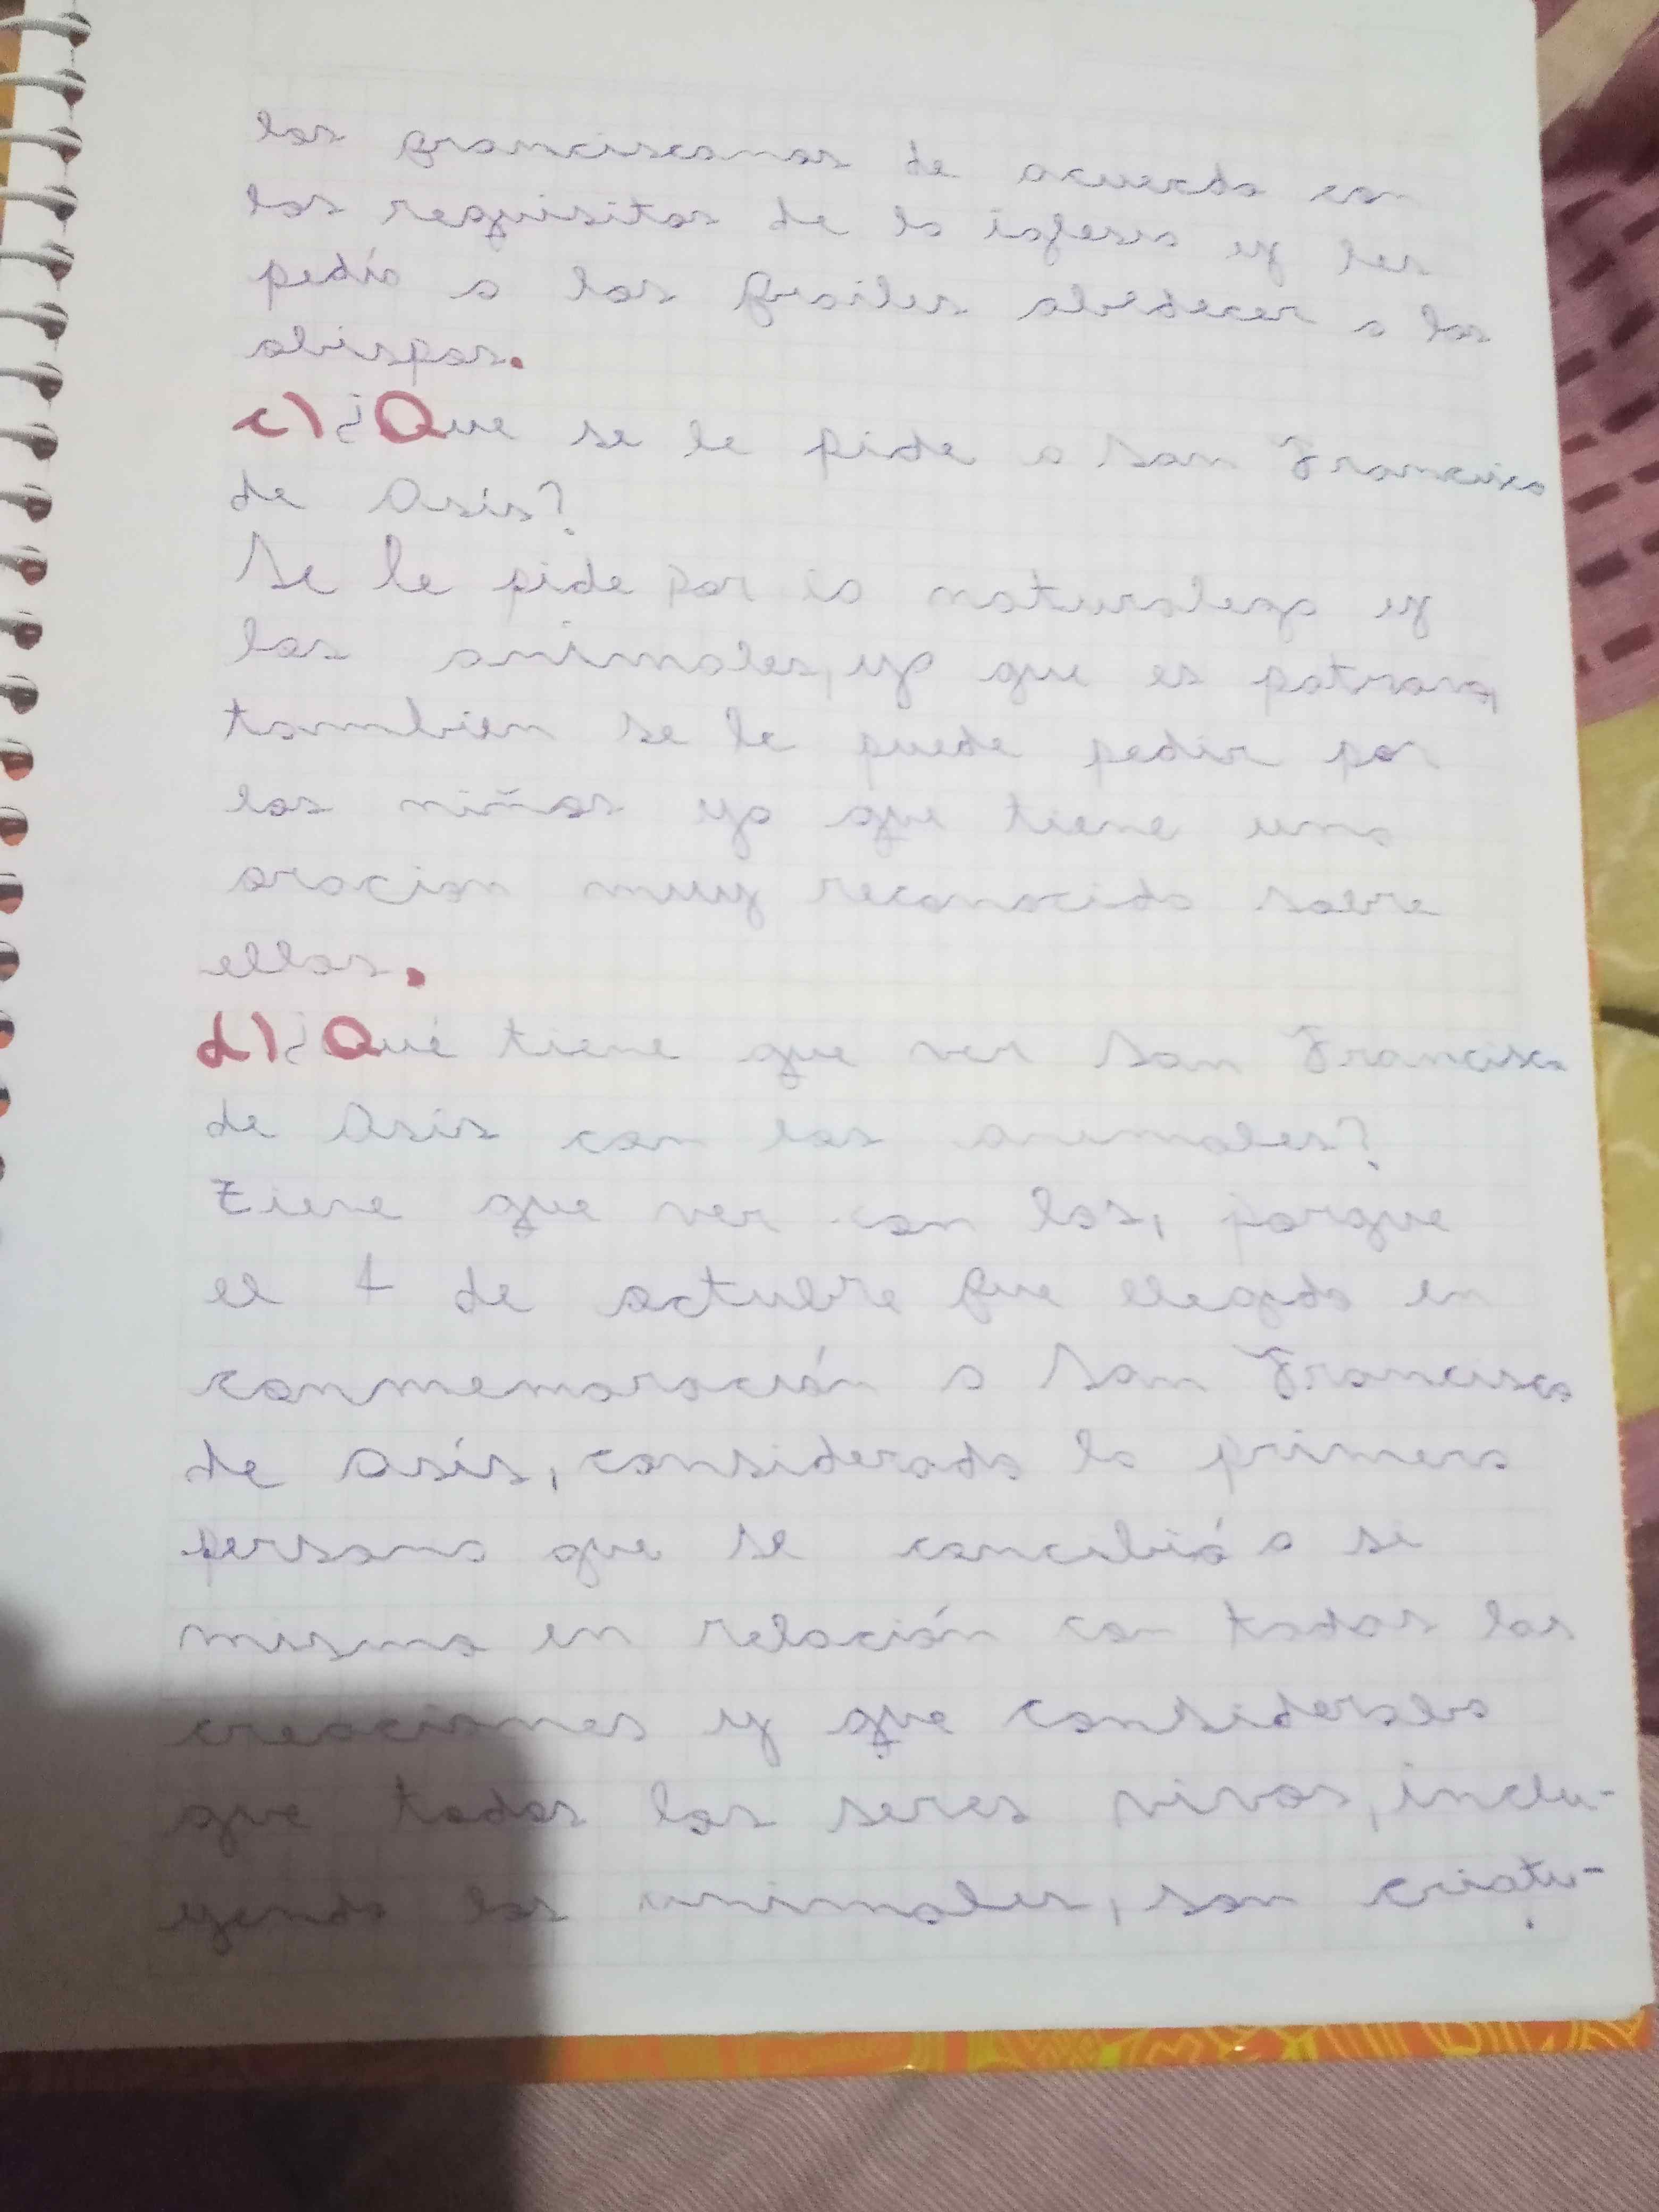 los franciscanos de acuerdo con
los requisitos de la iglesia y les
pedía a los frailes obedecer a los
obispos.
c) ¿Que se le pide a San Francisco
de Asís?
Se le pide por la naturaleza y
los animales, ya que es patrono,
tambien se le puede pedir por
los niños ya que tiene una
oracion muy reconocida sobre
ellos.
d) ¿Qué tiene que ver San Francisco
de Asís con los animales?
Tiene que ver con los, porque
el 4 de octubre fue elegido en
conmemoración a San Francisco
de Asís, considerado la primera
persona que se concibió a si
misma en relación con todos los
creaciones y que consideraba
que todos los seres vivos, inclu-
yendo los animales, son criatu-